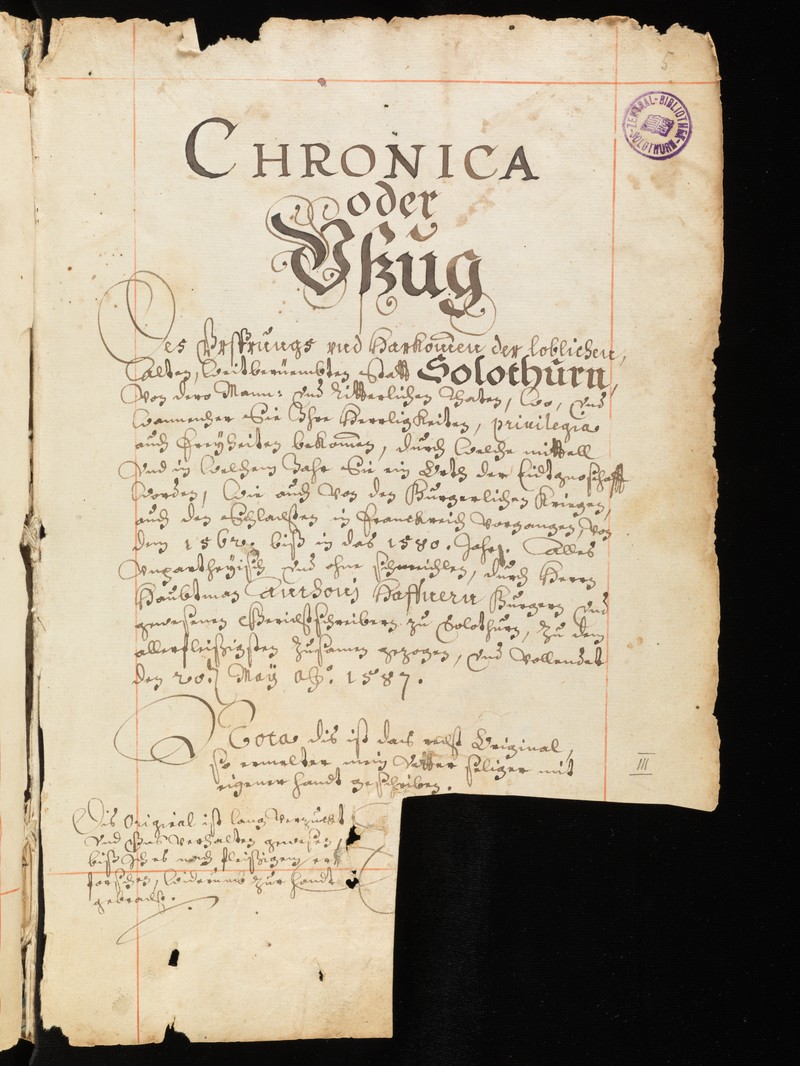 5
ZENTRAL-BIBLIOTHEK SOLOTHURN
CHRONICA
oder
Vßzug
Des Vrsprungs vnd Harkomen der loblichen,
alten, weitberüembten Statt Solothurn,
von dero Mann: vnd Ritterlichen thaten, wo, vnd
wannenher Sie Ihre Herrligkeiten, privilegia
auch freyheiten bekomen, durch welche mittell
vnd in welchem Jahr Sie ein Orth der Eidtgnoschafft
worden, wie auch von den Burgerlichen Kriegen,
auch den Schlachten in Franckreich vorgangen, von
dem 1562. biß in das 1580. Jahr. Alles
vnpartheyisch vnd ohne schmeichlen, durch Herrn
Haubtman Anthonj Haffnern Burgern vnd
gewesenen Gerichtschreibern zu Solothurn, zu dem
allerfleißigsten zusamen gezogen, vnd vollendet
den 20. May 1587.
Nota dis ist das recht Original,
so ermelter mein Vatter seliger mit
eigener handt geschriben.
III
Dis Original ist lang verzuckt
vnd verhalten gewesen,
biß Ich es nach fleißigem er=
forschen, widerumb zur handt
gebracht.